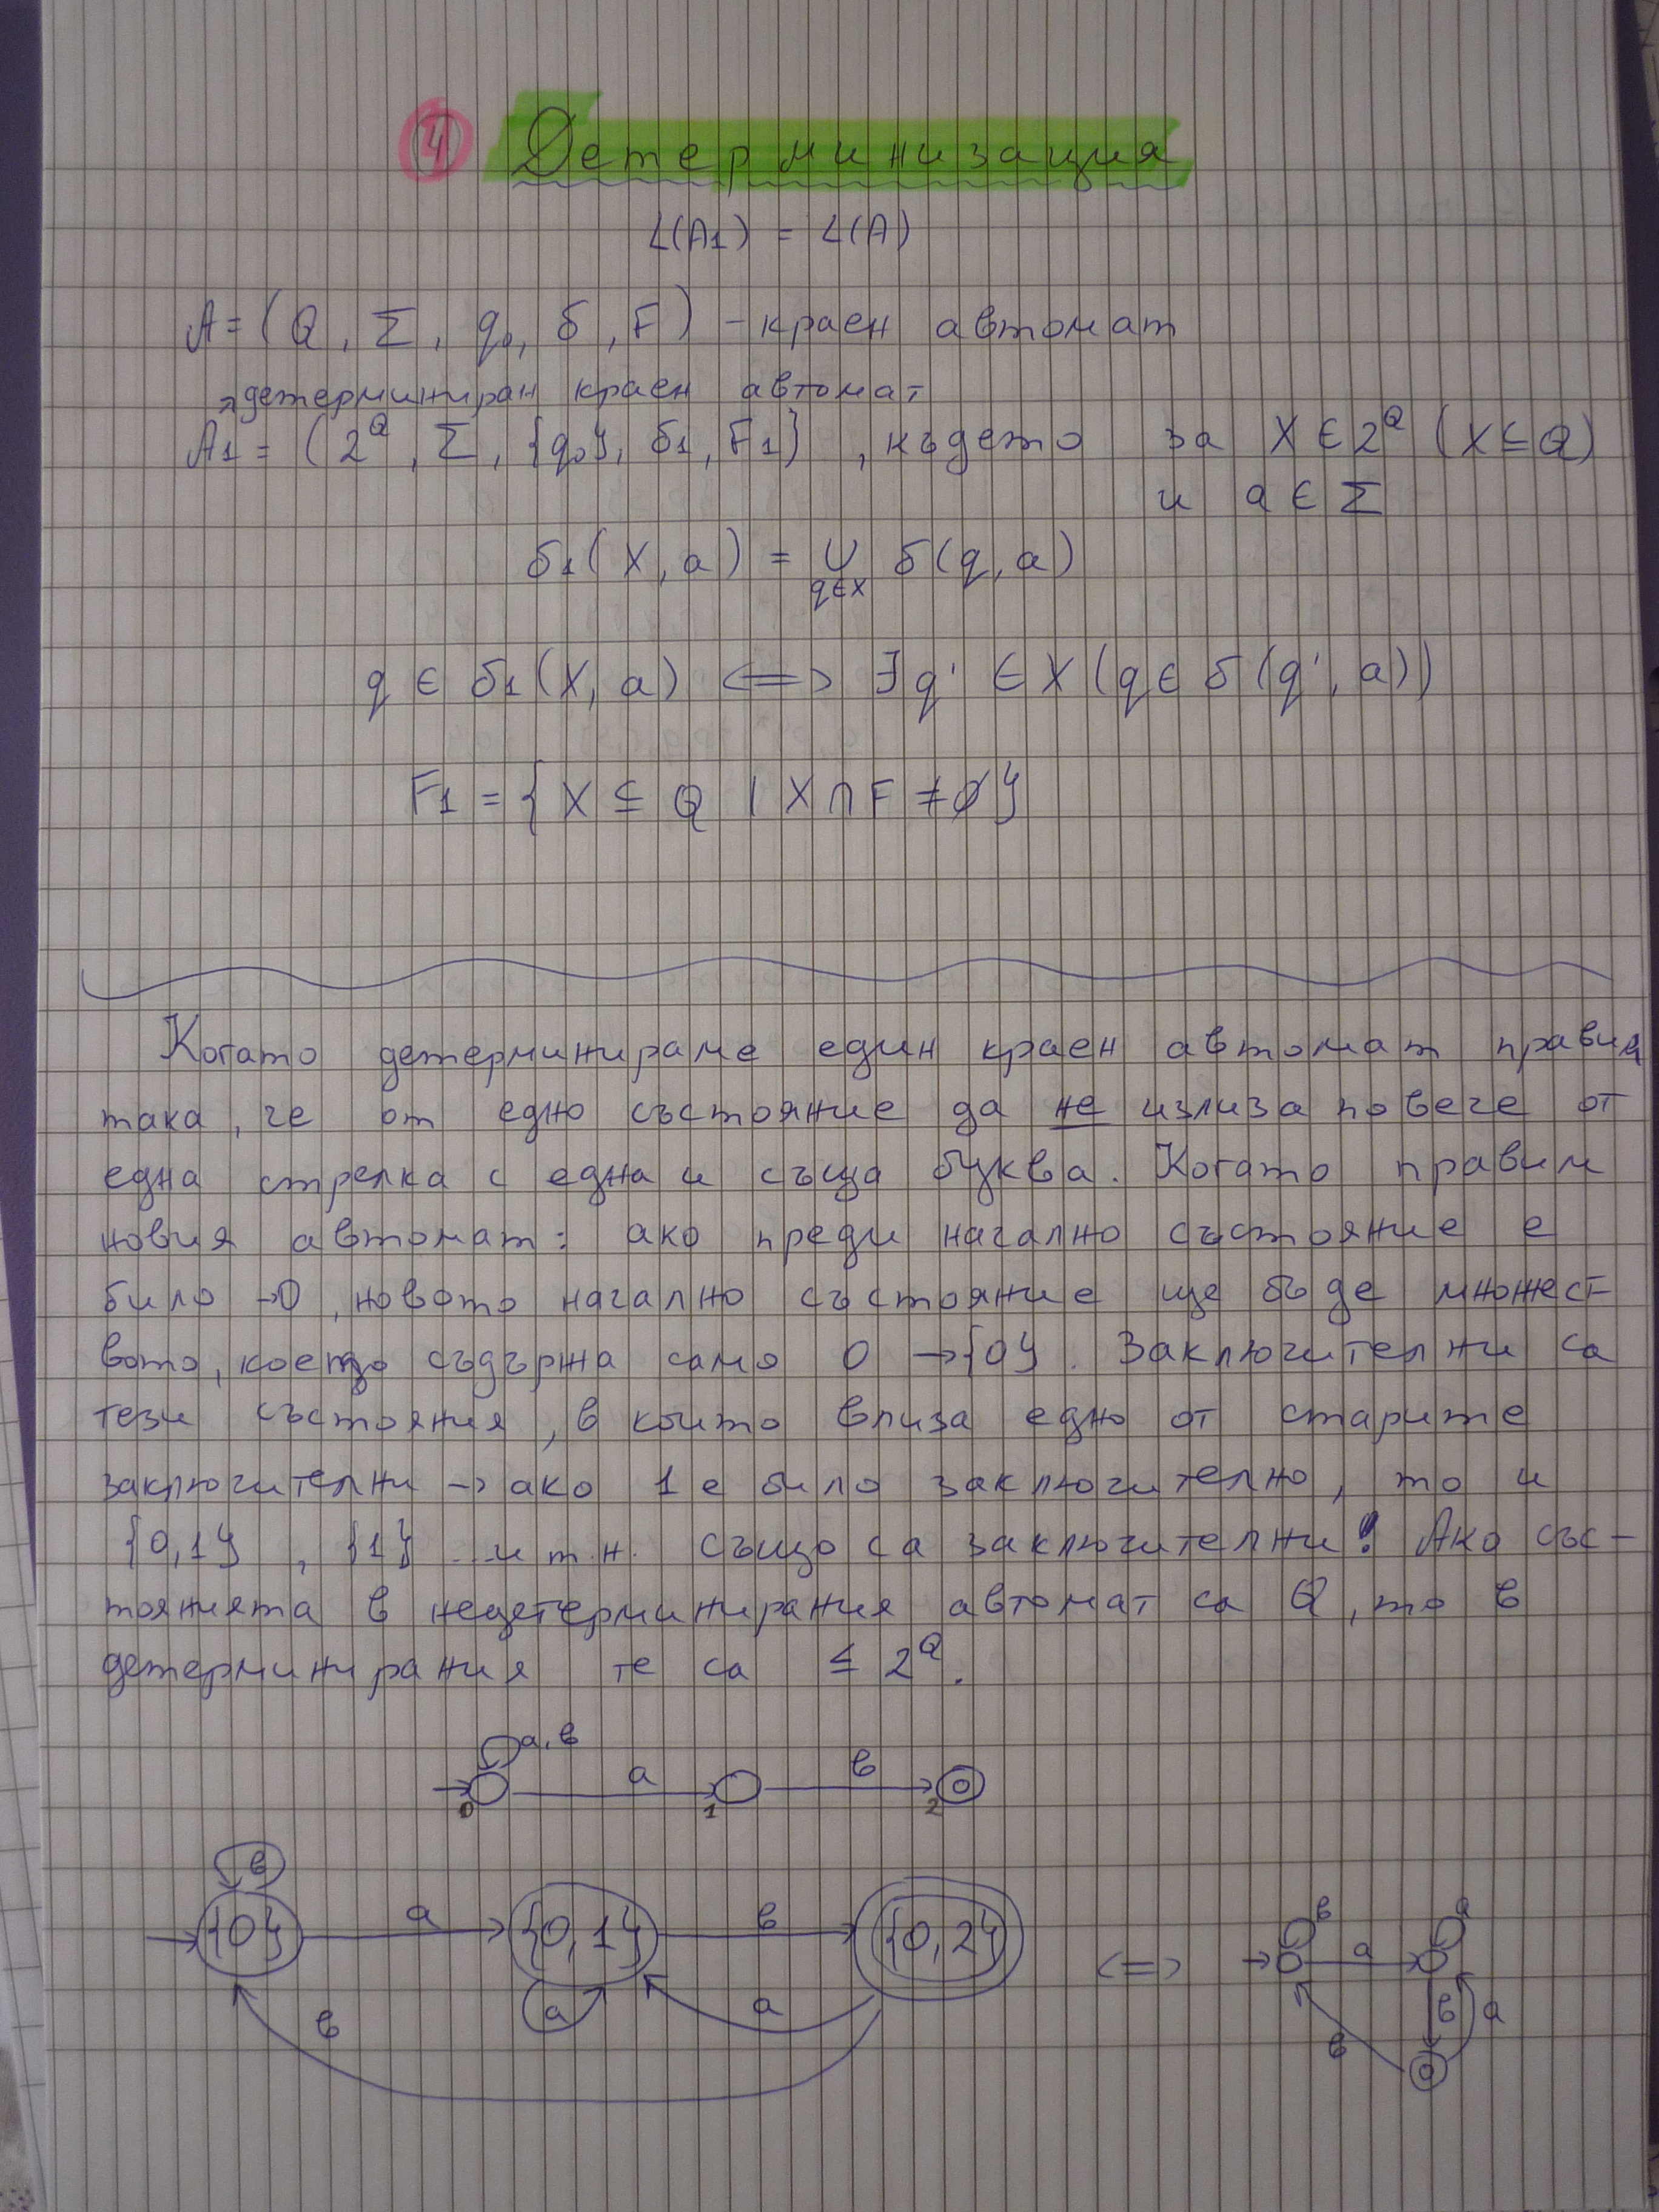 4 Детерминизация
L(A1) = L(A)
A = (Q, Σ, q0, δ, F) - краен автомат
→ детерминиран краен автомат
A1 = (2^Q, Σ, {q0}, δ1, F1}, където за X ∈ 2^Q (X ⊆ Q)
и a ∈ Σ
δ1(X, a) = ∪ δ(q, a)
q∈X
q ∈ δ1(X, a) <=> ∃q' ∈ X (q ∈ δ(q', a))
F1 = {X ⊆ Q | X ∩ F ≠ ∅}
Когато детерминираме един краен автомат правим
така, че от едно състояние да не излиза повече от
една стрелка с една и съща буква. Когато правим
новия автомат: ако преди начално състояние е
било →0, новото начално състояние ще бъде множест-
вото, което съдържа само 0 →{0}. Заключителни са
тези състояния, в които влиза едно от старите
заключителни → ако 1 е било заключително, то и
{0,1}, {1} ... и т.н. също са заключителни! Ако със-
тоянията в недетерминирания автомат са Q, то в
детерминирания те са ≤ 2^Q.
a, в
a в
0 1 2
в
{0} a {0,1} в {0,2} <=>
a a
в
в a
a
в a
в